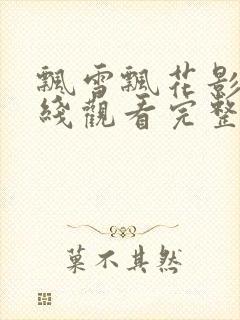 飄雪飄花影
綫觀看完整
菓不其然